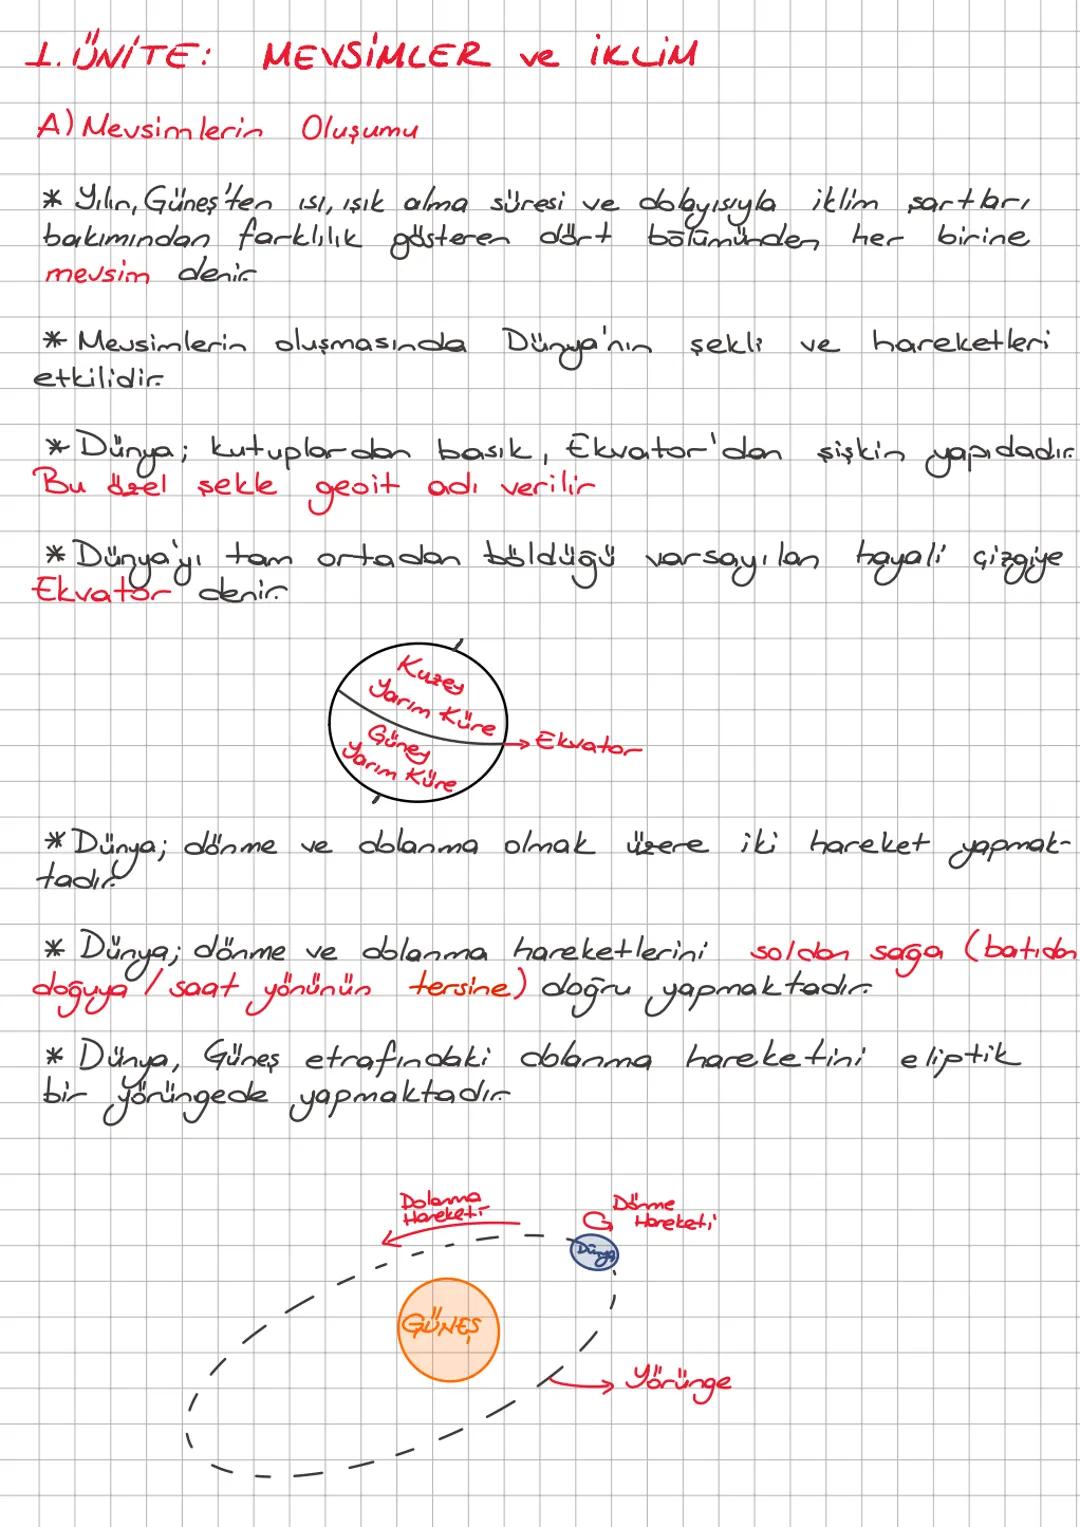 1. ÜNİTE: MEVSİMLER ve İKLİM
A) Mevsimlerin Oluşumu
* Yılın, Güneş'ten ısı, ışık alma süresi ve dolayısıyla iklim şartları
bakımından farklılık gösteren dört bölümünden her birine
mevsim denir.
* Mevsimlerin oluşmasında Dünya'nın şekli ve hareketleri
etkilidir.
* Dünya; kutuplardan basık, Ekvator'dan şişkin yapıdadır.
Bu özel şekle geoit adı verilir
* Dünya'yı tam ortadan böldüğü varsayılan hayali çizgiye
Ekvator denir.
Kuzey
Yarım Küre
Güney
Yarım Küre
Ekvator
* Dünya; dönme ve dolanma olmak üzere iki hareket yapmak-
tadır.
* Dünya; dönme ve dolanma hareketlerini soldan sağa (batıdan
doğuya / saat yönünün tersine) doğru yapmaktadır.
* Dünya, Güneş etrafındaki dolanma hareketini eliptik
bir yörüngede yapmaktadır.
Dolanma
Hareketi
Dönme
Hareketi
Dünya
GÜNEŞ
Yörünge